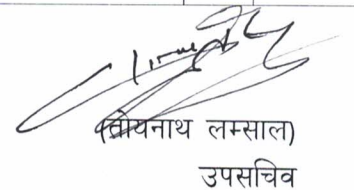 (तोयनाथ लम्साल)
उपसचिव